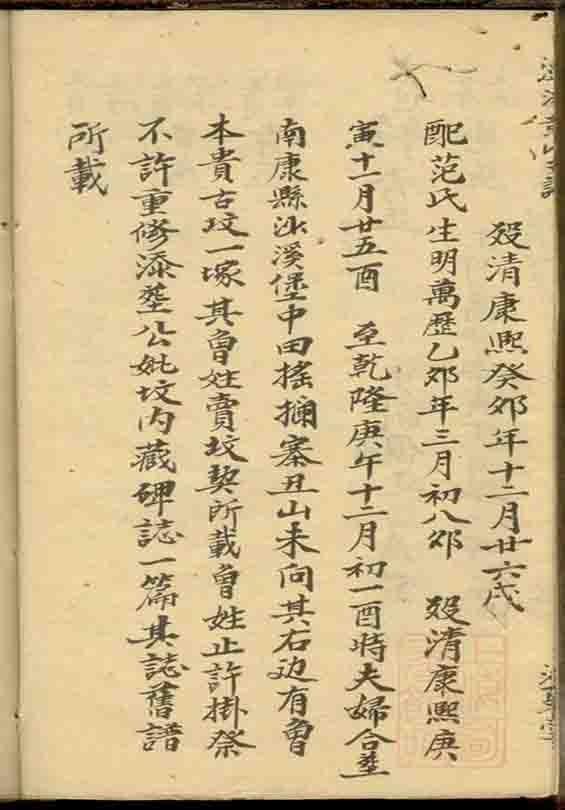 殁清康熙癸夘年十二月廿六戌
配范氏生明萬歷乙夘年三月初八夘 殁清康熙庚
寅十一月廿五酉 至乾隆庚午十二月初一酉時夫婦合塟
南康縣沙溪堡中田搖㨫寨丑山未向其右边有曾
本貴古坟一塚其曾姓賣坟契所載曾姓止許掛祭
不許重修添塟公妣坟内藏碑誌一篇其誌舊譜
所載